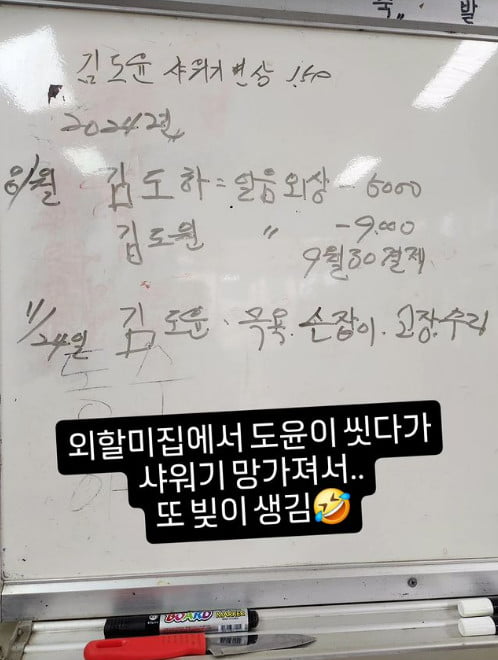 김도윤 샤워기변상 150
2024년
6/월 김도하=얼음외상 - 6000
김도원 〃 -9,000
9월30결제
11/24일 김도윤. 목욕. 손잡이. 고장. 수리
외할미집에서 도윤이 씻다가
샤워기 망가져서..
또 빚이 생김🤣
BOARD MARKER